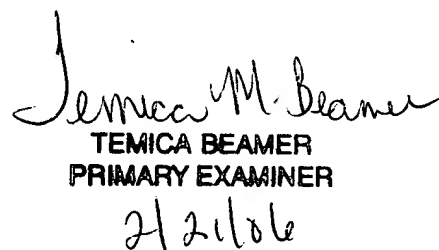 Temica M. Beamer
TEMICA BEAMER
PRIMARY EXAMINER
2/21/06